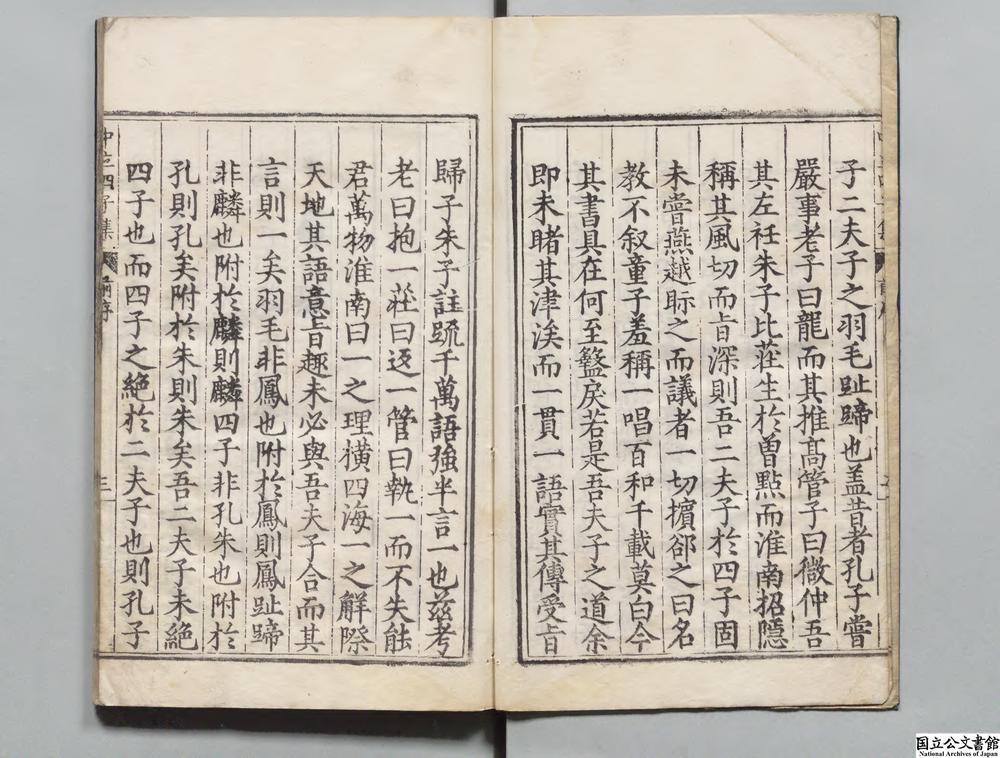 子二夫子之羽毛趾蹄也盖昔者孔子嘗
嚴事老子曰龍而其推高管子曰微仲吾
其左衽朱子比莊生於曽點而淮南招隱
稱其風切而㫖深則吾二夫子於四子固
未嘗燕越眎之而議者一切擯郤之曰名
教不叙童子羞稱一唱百和千載莫白今
其書具在何至盭戾若是吾夫子之道余
即未睹其津涘而一貫一語實其傳受㫖
歸子朱子註䟽千萬語強半言一也茲考
老曰抱一莊曰返一管曰執一而不失能
君萬物淮南曰一之理橫四海一之解際
天地其語意㫖趣未必與吾夫子合而其
言則一矣羽毛非鳳也附於鳳則鳳趾蹄
非麟也附於麟則麟四子非孔朱也附於
孔則孔矣附於朱則朱矣吾二夫子未絕
四子也而四子之絕於二夫子也則孔子
中立四子集
三
国立公文書館
National Archives of Japan